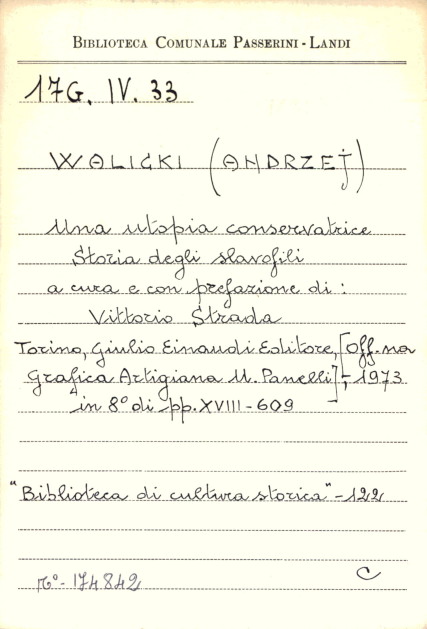 BIBLIOTECA COMUNALE PASSERINI - LANDI
17G. IV. 33
WALICKI (ANDRZEJ)
Una utopia conservatrice
Storia degli slavofili
a cura e con prefazione di :
Vittorio Strada
Torino, Giulio Einaudi Editore, [Off.na
Grafica Artigiana U. Panelli], 1973
in 8° di pp. XVIII - 609
"Biblioteca di cultura storica" - 122
N° - 174842
C